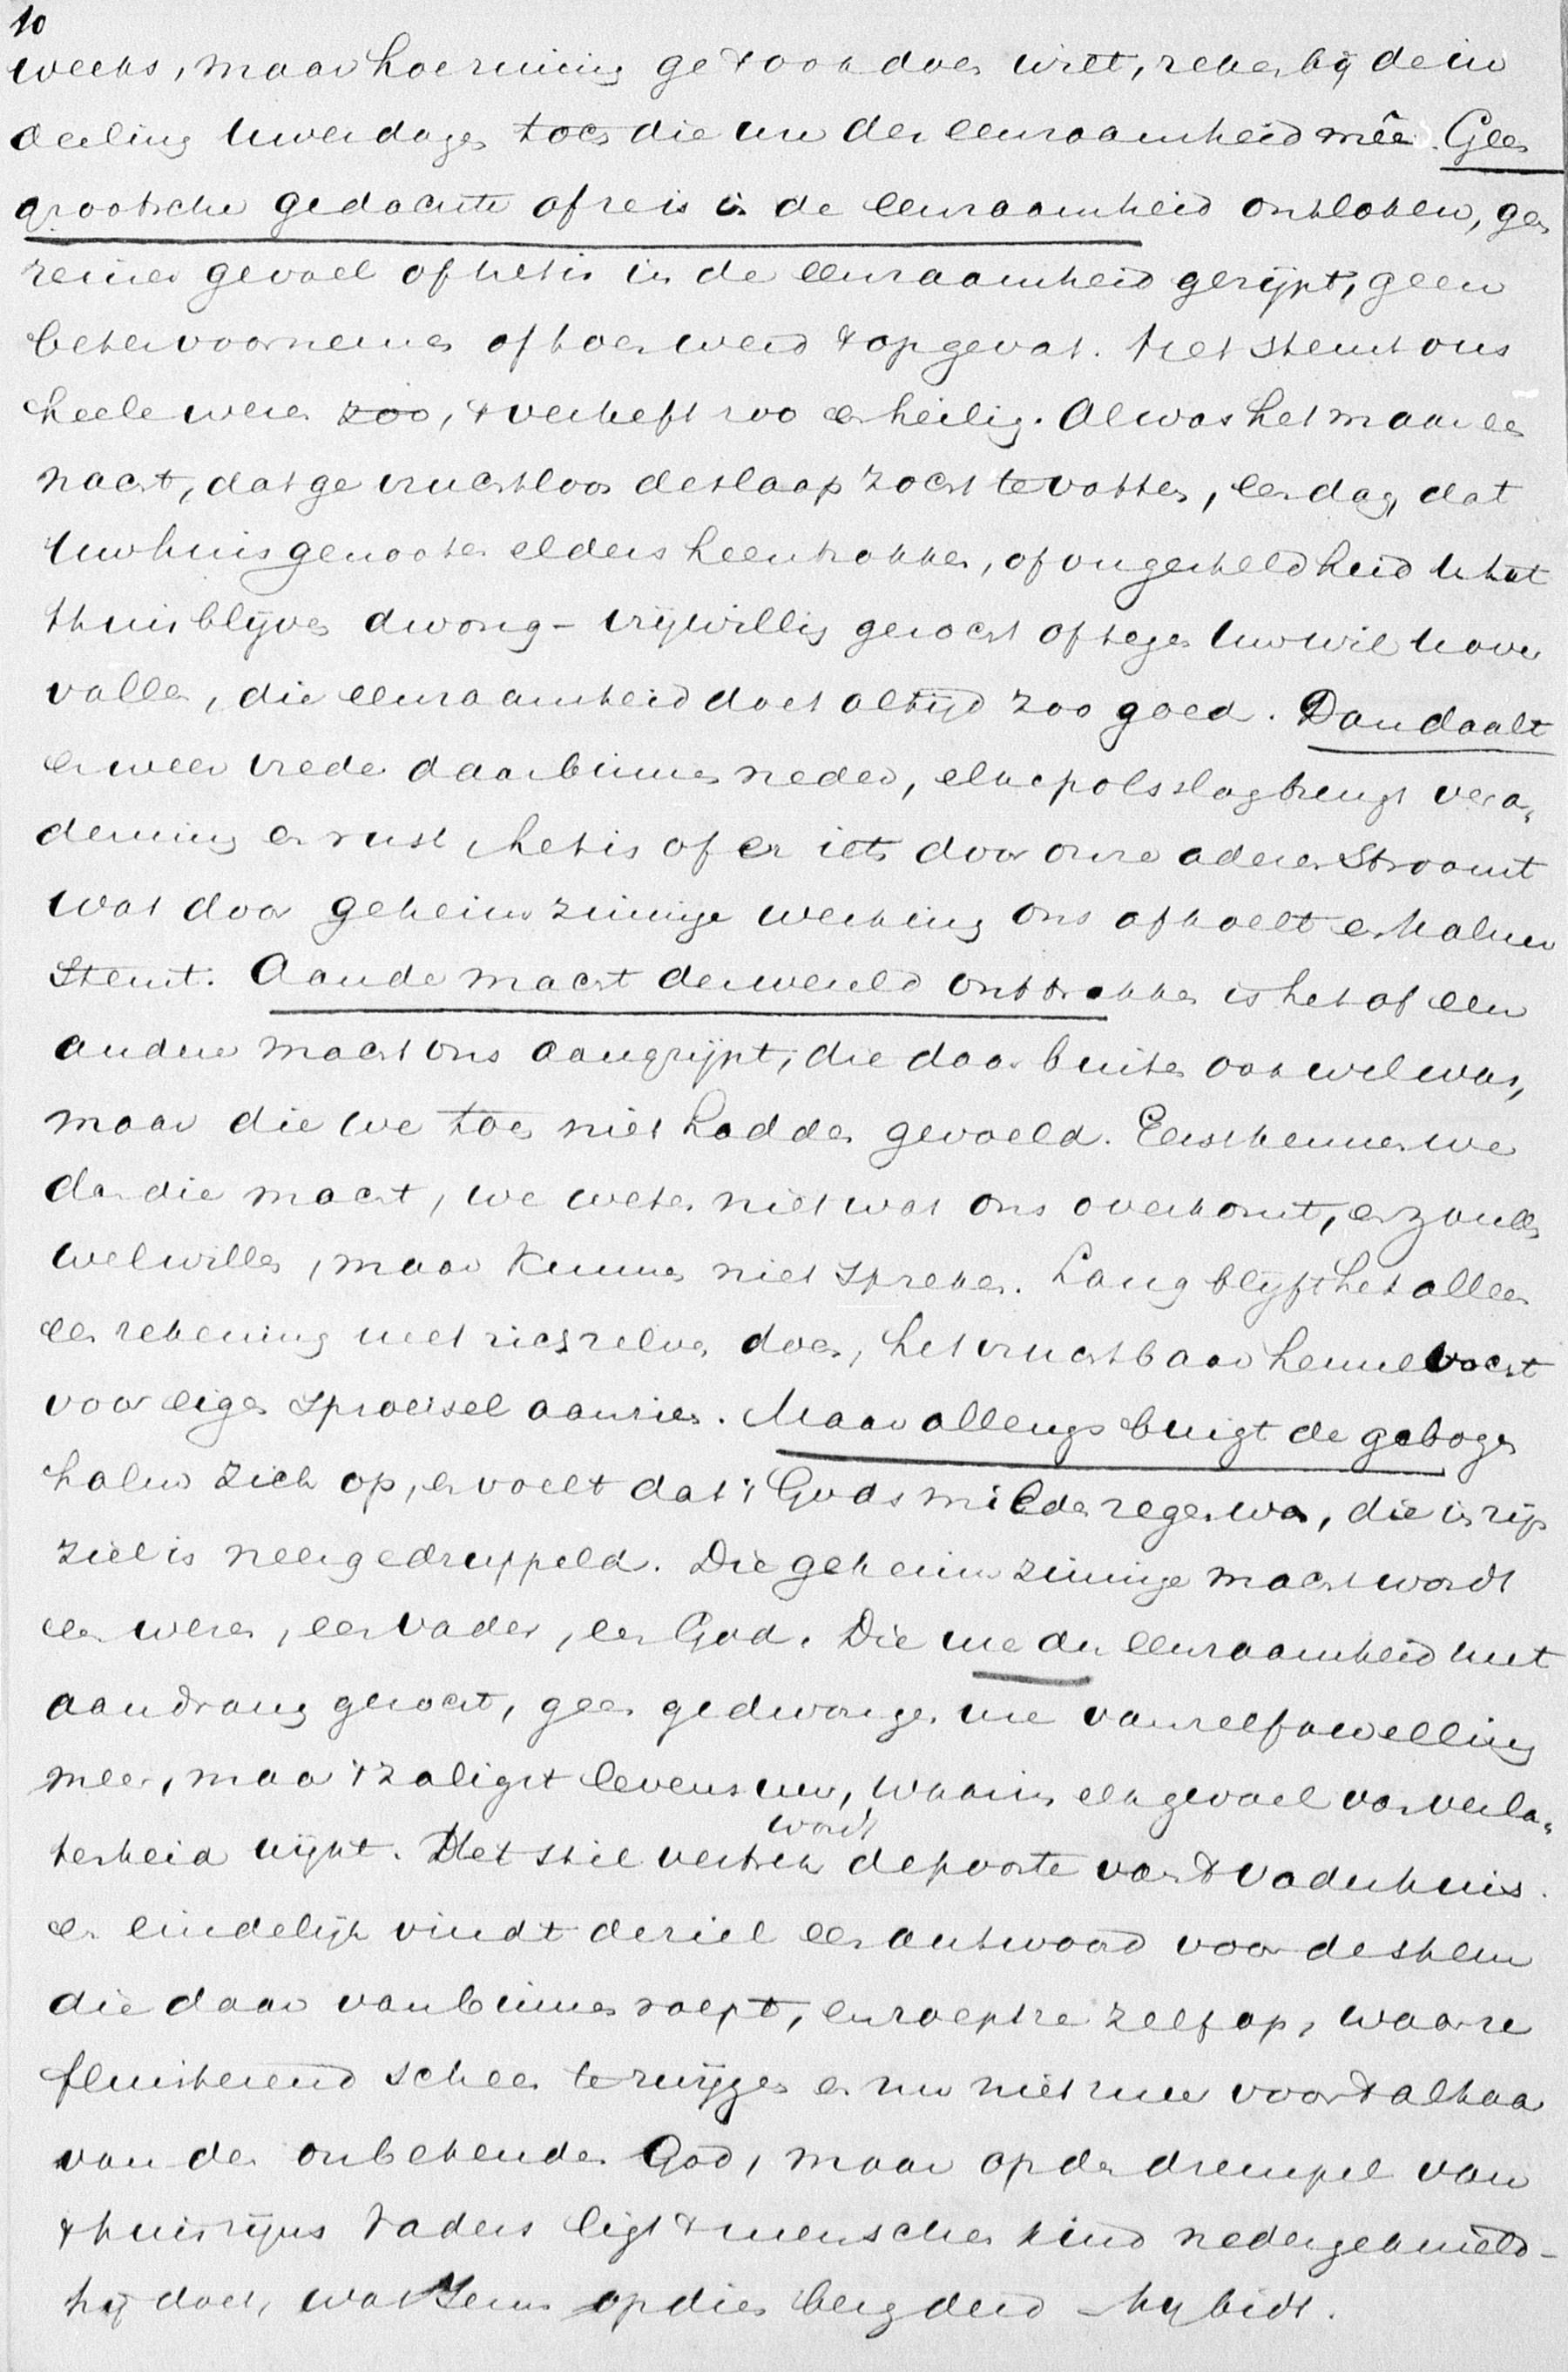 10
weeks, maar hoe zuinig ge 't ook doen wilt, reken bij de in
deeling uwer dagen toch die uw der eenzaamheid meê. Geen
grootsche gedachte of ze is in de eenzaamheid ontloken, geen
reiner gevoel of het is in de eenzaamheid gerijpt, geen
beter voornemen of toen werd 't opgevat. Het stemt ons
heele wezen zóó, 't verheft zoo en heiligt. Al was het maar een
nacht, dat ge vruchtloos de slaap zocht te vatten, een dag, dat
uw huisgenooten elders heentrokken, of ongesteldheid u tot
thuisblijven dwong - vrijwillig gezocht of tegen uw wil u over
vallen, die eenzaamheid doet altijd zoo goed. Dan daalt
er weer vrede daarbinnen neder, elke polsslag brengt vera„
deming en rust, het is of er iets door onze aderen stroomt
wat door geheimzinnige werking ons afkoelt en kalmer
stemt. Aan de macht der wereld onttrokken is het of een
andere macht ons aangrijpt, die daar buiten ook wel was,
maar die we toen niet hadden gevoeld. Eerst kennen we
dan die macht, we weten niet wat ons overkomt, en zouden
wel willen, maar kunnen niet spreken. Lang blijft het alleen
een rekening met zich zelven doen, het vruchtbaar hemelvocht
voor eigen sproeisel aanzien. Maar allengs buigt de gebogen
halm zich op, en voelt dat 't Gods milde regen was, die in zijn
ziel is neergedruppeld. Die geheimzinnige macht wordt
een wezen, een Vader, een God. Die ure der eenzaamheid met
aandrang gezocht, geen gedwongen ure van zelfkwelling
meer, maar 't zaligst levensuur, waarin elk gevoel van verla„
tenheid wijkt. Het stil vertrek wordt de poorte van 't Vaderhuis.
en eindelijk vindt de ziel een antwoord voor de stem
die daar van binnen roept, en roept ze zelf op, waar ze
fluisterend scheen te zwijgen en nu niet meer voor 't altaar
van den onbekenden God, maar op den drempel van
't huis zijns Vaders ligt 't menschen kind nedergeknield -
hij doet, wat Jezus op dien berg deed - hij bidt.